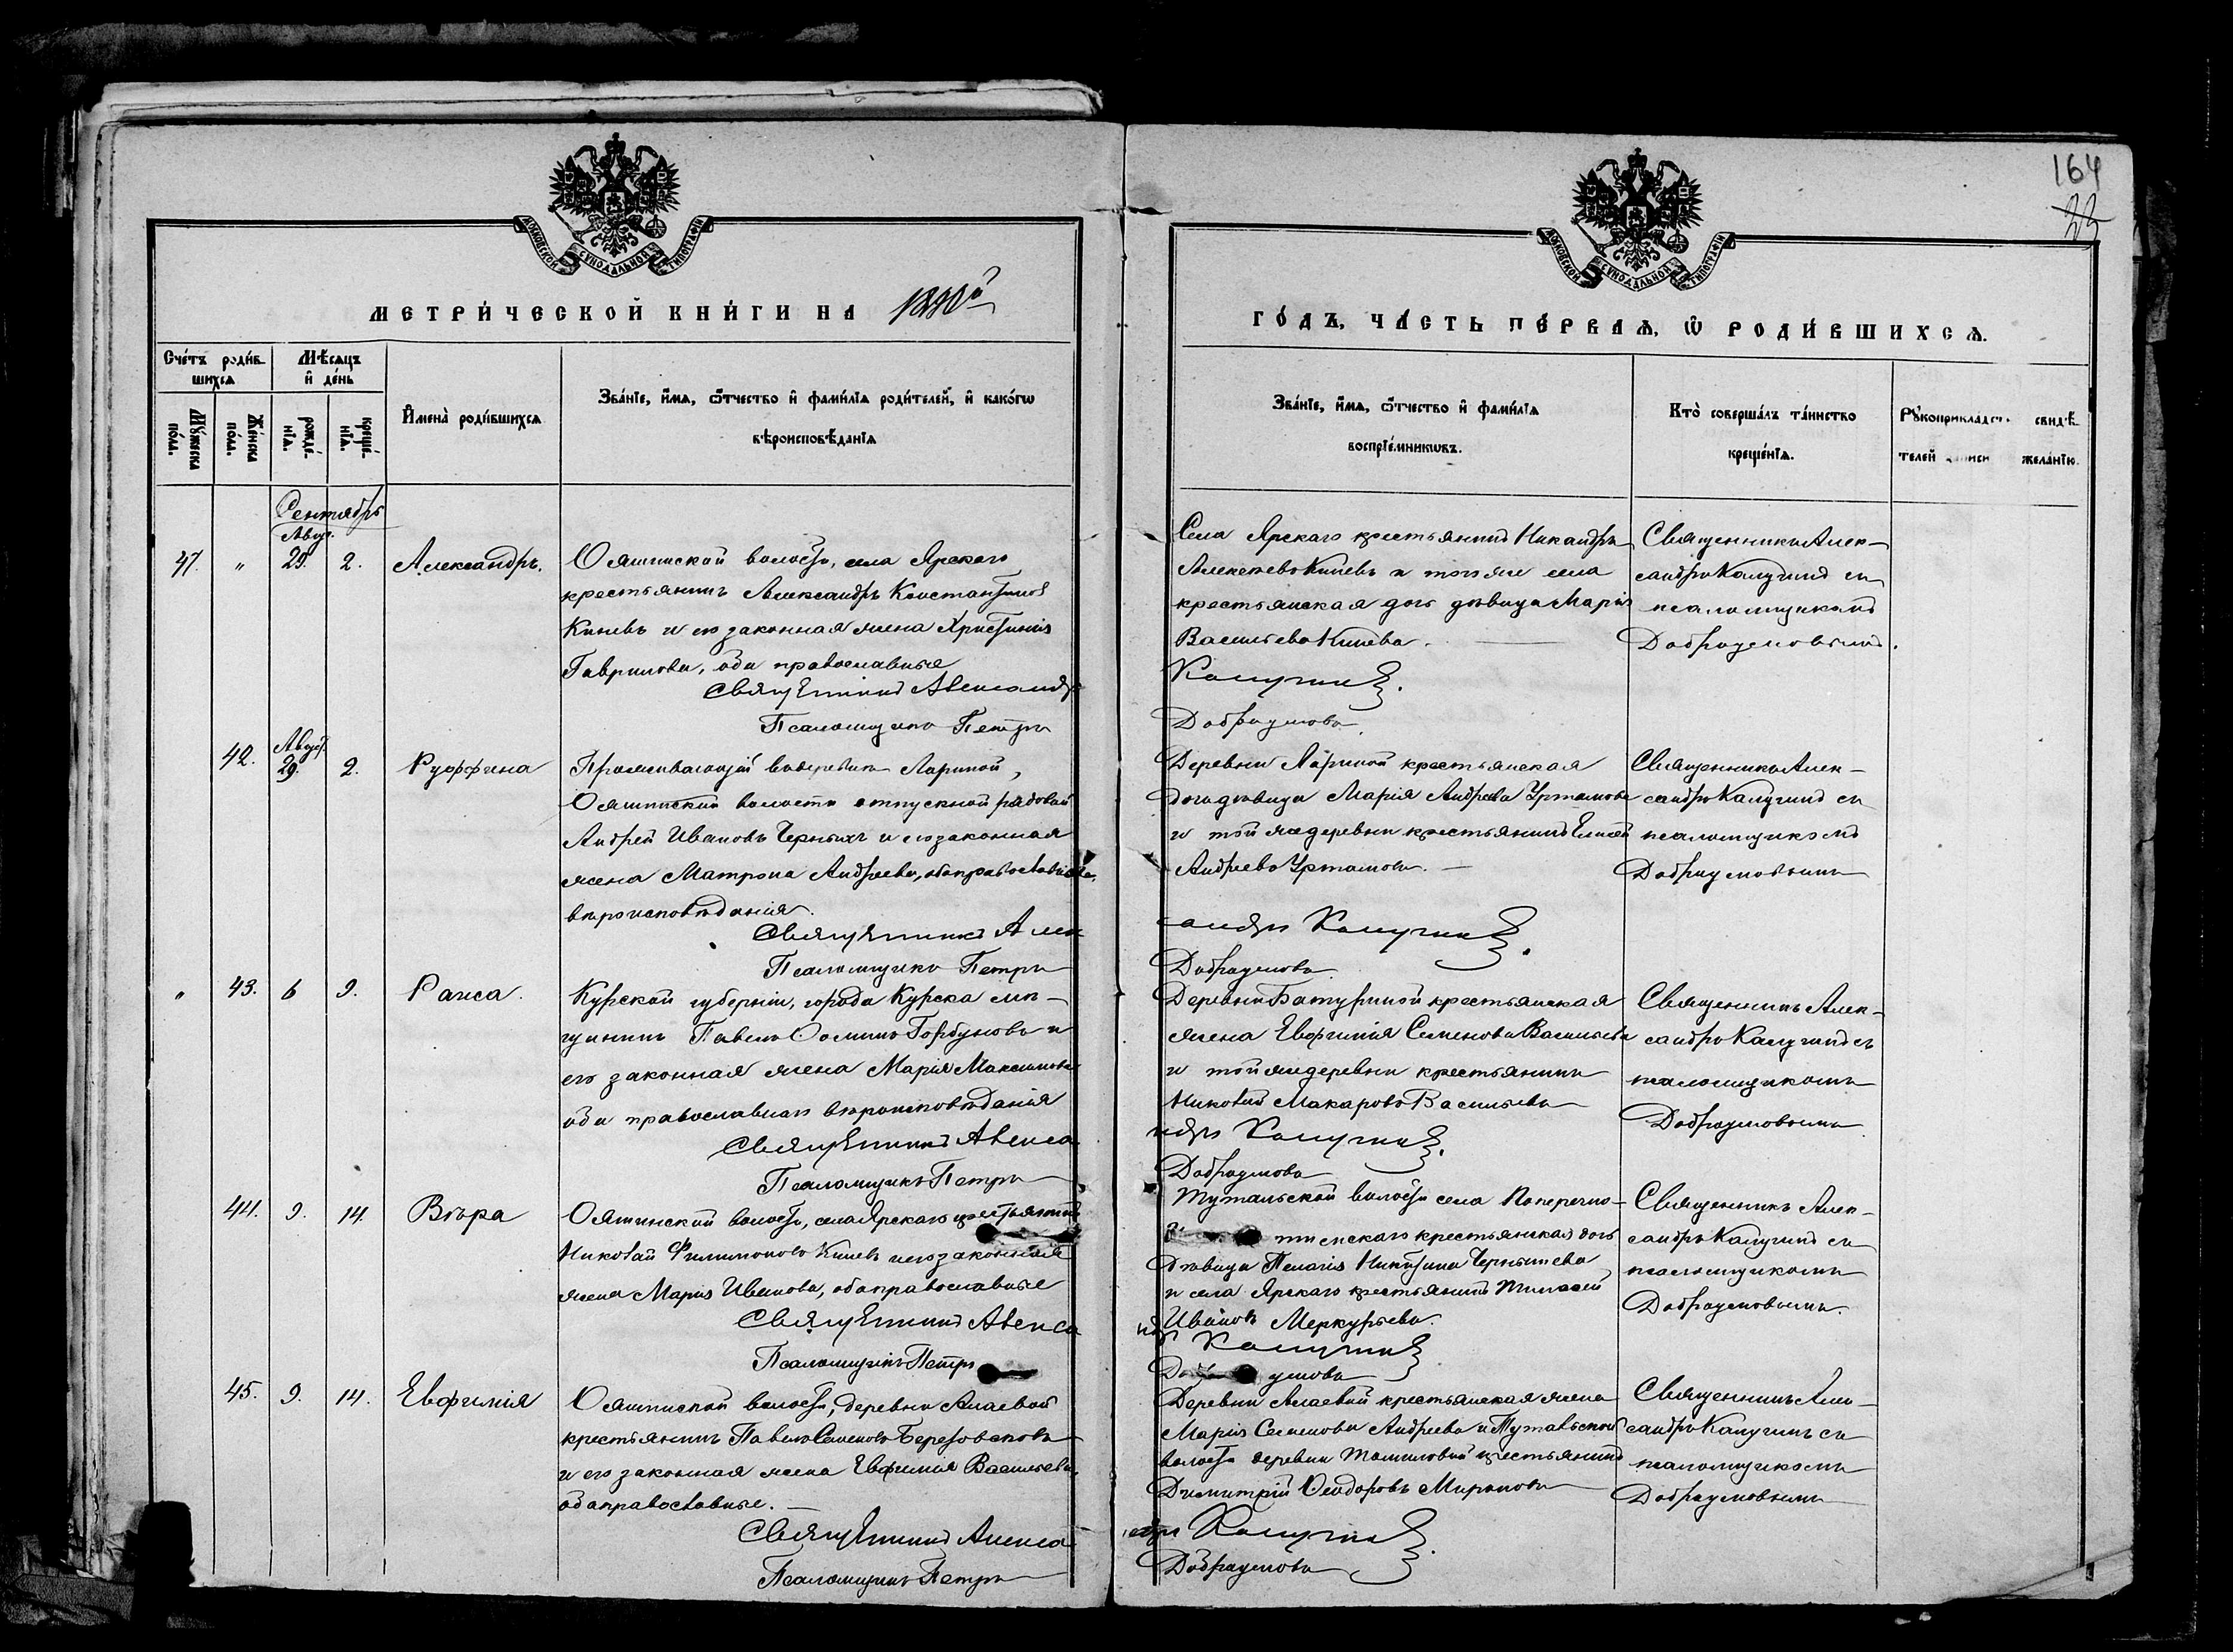 164
22
МОСКОВСКОЙ СѴНОДАЛЬНОЙ ТИПОГРАФІИ
МОСКОВСКОЙ СѴНОДАЛЬНОЙ ТИПОГРАФІИ
МЕТРИ́ЧЕСКОЙ КНИ́ГИ НА 1890й
ГО́ДЪ, ЧА́СТЬ ПЕ́РВАѦ, Ѡ РОДИ́ВШИХСѦ.
Сче́тъ роди́в-
шихсѧ
Мѣсѧцъ
и҆ де́нь
Мꙋ́жеска
по́ла.
Же́нска
по́ла.
рожде́-
нїѧ.
креще́-
нїѧ.
И҆мена̀ роди́вшихсѧ
Зва́нїе, и҆́мѧ, ѻ҆́тчество и҆ фами́лїѧ роди́телей, и҆ како́гѡ
вѣроисповѣ́данїѧ
Зва́нїе, и҆́мѧ, ѻ҆́тчество и҆ фами́лїѧ
воспрїе́мникѡвъ.
Кто̀ соверша́лъ та́инство
креще́нїѧ.
Рꙋкоприкладст свидѣ́-
телей жела́нїю.
Сентябрь
Авгу.
47. " 29. 2. Александръ.
Ояшинской волости, села Ярскаго
крестьянинъ Александръ Константиновъ
Киневъ и его законная жена Христинія
Гаврилова, оба православные
Священникъ Александръ
Псаломщикъ Петръ
Села Ярскаго крестьянинъ Никандръ
Алексѣевъ Киневъ и того же села
крестьянская дочь дѣвица Марія
Васильева Кинева.
Калугинъ.
Добраумовъ.
Священникъ Алек-
сандръ Калугинъ съ
псаломщикомъ
Добраумовымъ.
42. Август. 29. 2. Руффина
Проживающій въ деревнѣ Лариной,
Ояшинской волости отпускной рядовой
Андрей Ивановъ Черныхъ и его законная
жена Матрона Андреева, оба православнаго
вѣроисповѣданія.
Священникъ Алек
Псаломщикъ Петръ
Деревни Лариной крестьянская
дочь дѣвица Марія Андреева Уртамова
и той же деревни крестьянинъ Елисей
Андреевъ Уртамовъ.
сандръ Калугинъ.
Добраумовъ.
Священникъ Алек-
сандръ Калугинъ съ
псаломщикомъ
Добраумовымъ
" 43. 6 9. Раиса.
Курской губерніи, города Курска мѣ-
щанинъ Павелъ Горбуновъ и
его законная жена Марія Максимова
оба православнаго вѣроисповѣданія
Священникъ Алекса
Псаломщикъ Петръ
Деревни Батуриной крестьянская
жена Евфимія Семенова Васильева
и той же деревни крестьянинъ
Николай Макаровъ Васильевъ
ндръ Калугинъ.
Добраумовъ
Священникъ Алек-
сандръ Калугинъ съ
псаломщикомъ
Добраумовымъ
44. 9. 14. Вѣра
Ояшинской волости, села Ярскаго крестьянинъ
Николай Филимоновъ Киневъ и его законная
жена Марія Иванова, оба православные
Священникъ Алекса
Псаломщикъ Петръ
Тутальской волости села Поперечно-
скаго крестьянская дочь
дѣвица Пелагія Никитина Чернышева
и села Ярскаго крестьянинъ
Ивановъ Меркурьевъ.
Калугинъ
умовъ
Священникъ Алек-
сандръ Калугинъ съ
псаломщикомъ
Добраумовымъ.
45. 9. 14. Евфимія
Ояшинской волости, деревни Алаевой
крестьянинъ Павелъ Семеновъ Березовскій
и его законная жена Евфимія Васильева
оба православные.
Священникъ Алекса
Псаломщикъ Петръ
Деревни Алаевой крестьянская жена
Марія Семенова Андреева и Тутальской
волости деревни Томиловой крестьянинъ
Димитрій Ѳеодоровъ Мироновъ
ндръ Калугинъ.
Добраумовъ
Священникъ Алек-
сандръ Калугинъ съ
псаломщикомъ
Добраумовымъ